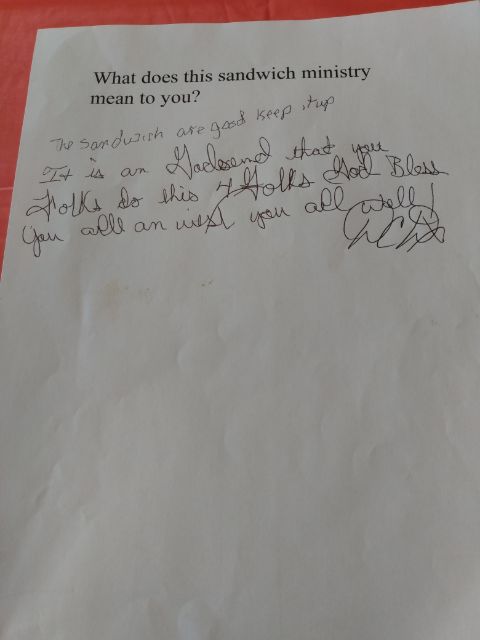 What does this sandwich ministry
mean to you?
The Sandwish are good keep it up
It is an Godesend that you
Folks do this 4 Folks God Bless
you all an wish you all well!